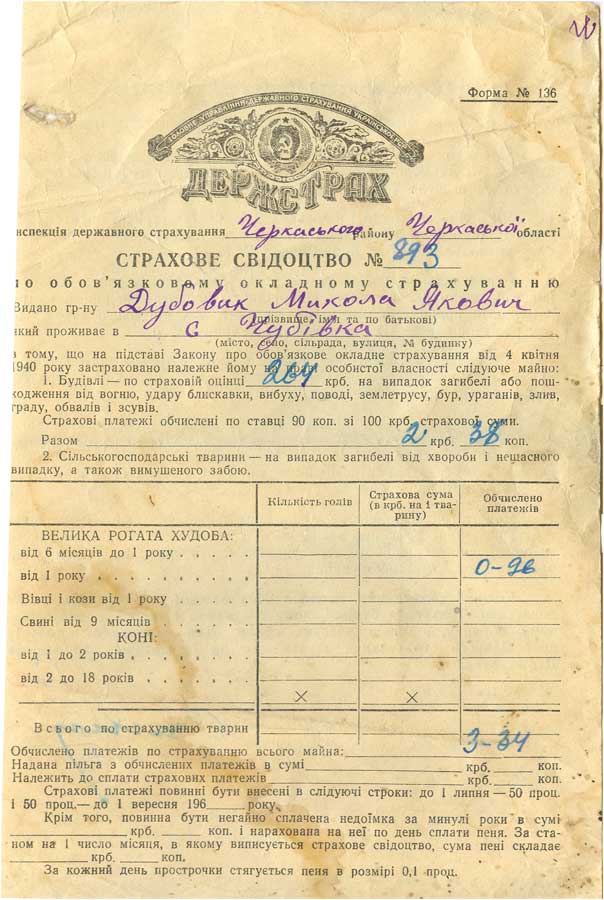 Форма № 136
ГОЛОВНЕ УПРАВЛІННЯ ДЕРЖАВНОГО СТРАХУВАННЯ УКРАЇНСЬКОЇ РСР
ДЕРЖСТРАХ
Інспекція державного страхування Черкаського району Черкаської області
СТРАХОВЕ СВІДОЦТВО № 893
по обов'язковому окладному страхуванню
Видано гр-ну Дубовик Микола Якович
(прізвище, ім'я та по батькові)
який проживає в с Чубівка
(місто, село, сільрада, вулиця, № будинку)
в тому, що на підставі Закону про обов'язкове окладне страхування від 4 квітня
1940 року застраховано належне йому на праві особистої власності слідуюче майно:
1. Будівлі — по страховій оцінці 264 крб. на випадок загибелі або пош-
кодження від вогню, удару блискавки, вибуху, поводі, землетрусу, бур, ураганів, злив,
граду, обвалів і зсувів.
Страхові платежі обчислені по ставці 90 коп. зі 100 крб. страхової суми.
Разом 2 крб. 38 коп.
2. Сільськогосподарські тварини — на випадок загибелі від хвороби і нещасного
випадку, а також вимушеного забою.
Кількість голів
Страхова сума (в крб. на 1 тва-рину)
Обчислено платежів
ВЕЛИКА РОГАТА ХУДОБА:
від 6 місяців до 1 року . . . . .
від 1 року . . . . . . . . . 0-96
Вівці і кози від 1 року . . . . .
Свині від 9 місяців . . . . . .
КОНІ:
від 1 до 2 років . . . . . . .
від 2 до 18 років . . . . . . .
× ×
Всього по страхуванню тварин
3-34
Обчислено платежів по страхуванню всього майна:
Надана пільга з обчислених платежів в сумі крб. коп.
Належить до сплати страхових платежів крб. коп.
Страхові платежі повинні бути внесені в слідуючі строки: до 1 липня — 50 проц.
і 50 проц. — до 1 вересня 196 року.
Крім того, повинна бути негайно сплачена недоїмка за минулі роки в сумі
крб. коп. і нарахована на неї по день сплати пеня. За ста-
ном на 1 число місяця, в якому виписується страхове свідоцтво, сума пені складає
крб. коп.
За кожний день прострочки стягується пеня в розмірі 0,1 проц.